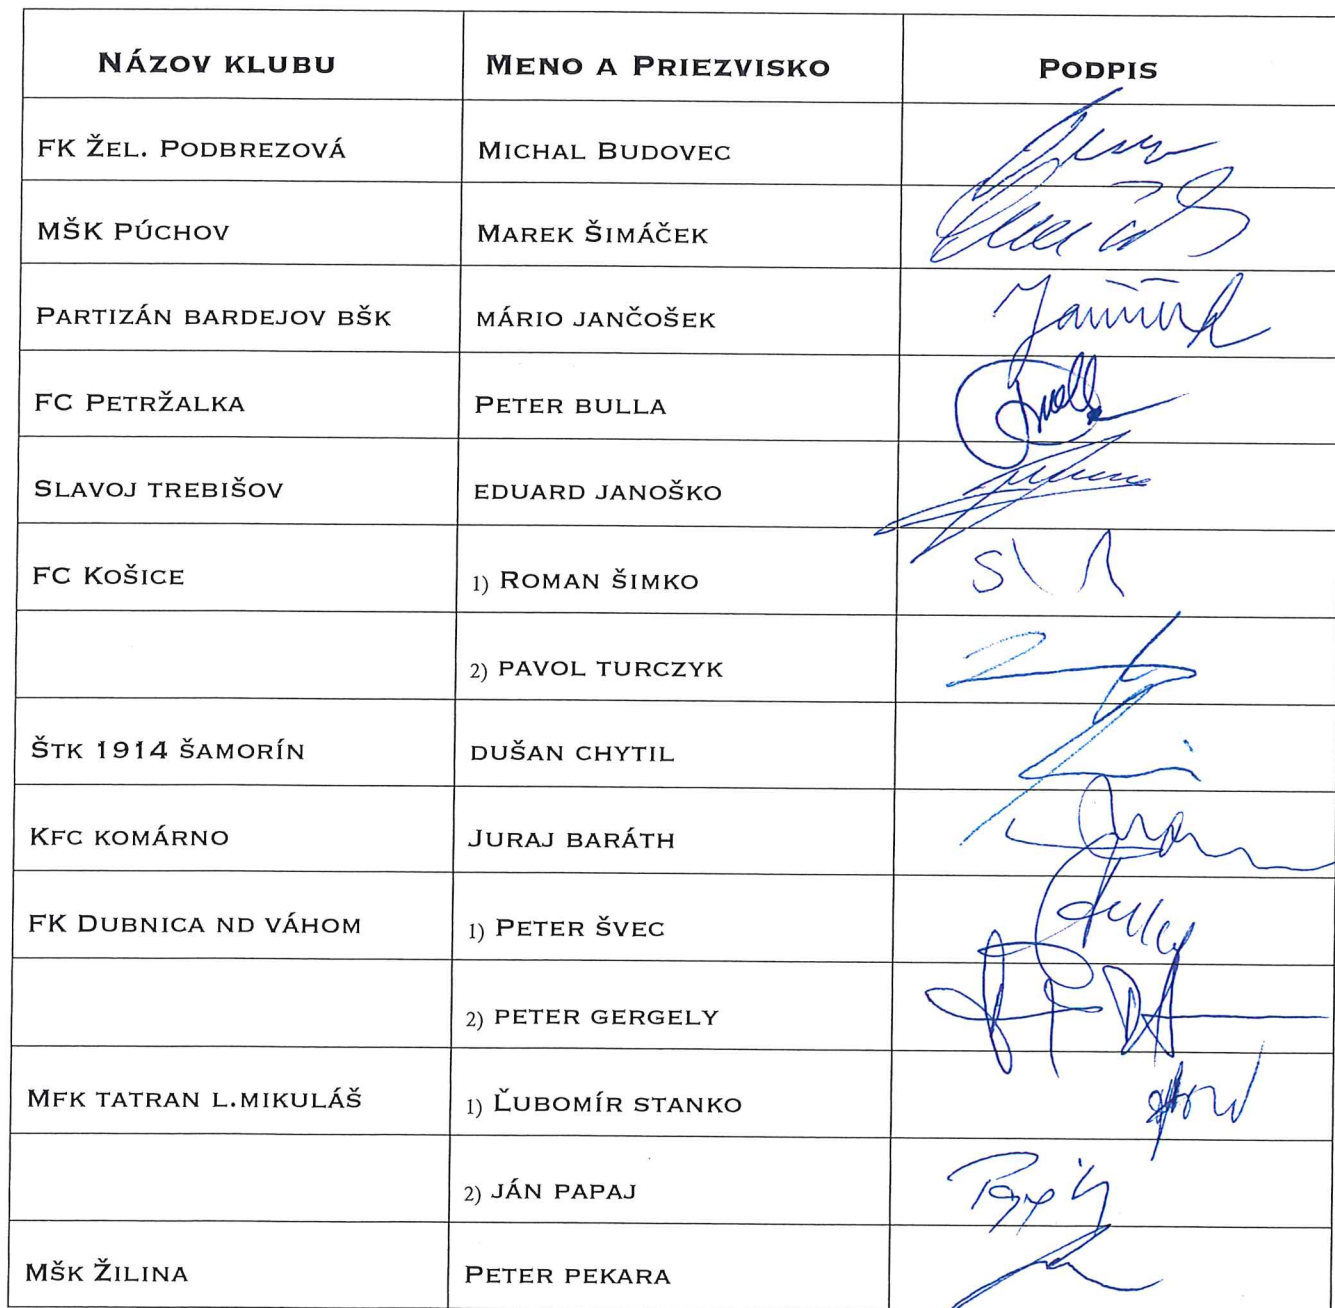 NÁZOV KLUBU MENO A PRIEZVISKO PODPIS
FK ŽEL. PODBREZOVÁ MICHAL BUDOVEC
MŠK PÚCHOV MAREK ŠIMÁČEK
PARTIZÁN BARDEJOV BŠK MÁRIO JANČOŠEK
FC PETRŽALKA PETER BULLA
SLAVOJ TREBIŠOV EDUARD JANOŠKO
FC KOŠICE 1) ROMAN ŠIMKO
2) PAVOL TURCZYK
ŠTK 1914 ŠAMORÍN DUŠAN CHYTIL
KFC KOMÁRNO JURAJ BARÁTH
FK DUBNICA ND VÁHOM 1) PETER ŠVEC
2) PETER GERGELY
MFK TATRAN L.MIKULÁŠ 1) ĽUBOMÍR STANKO
2) JÁN PAPAJ
MŠK ŽILINA PETER PEKARA